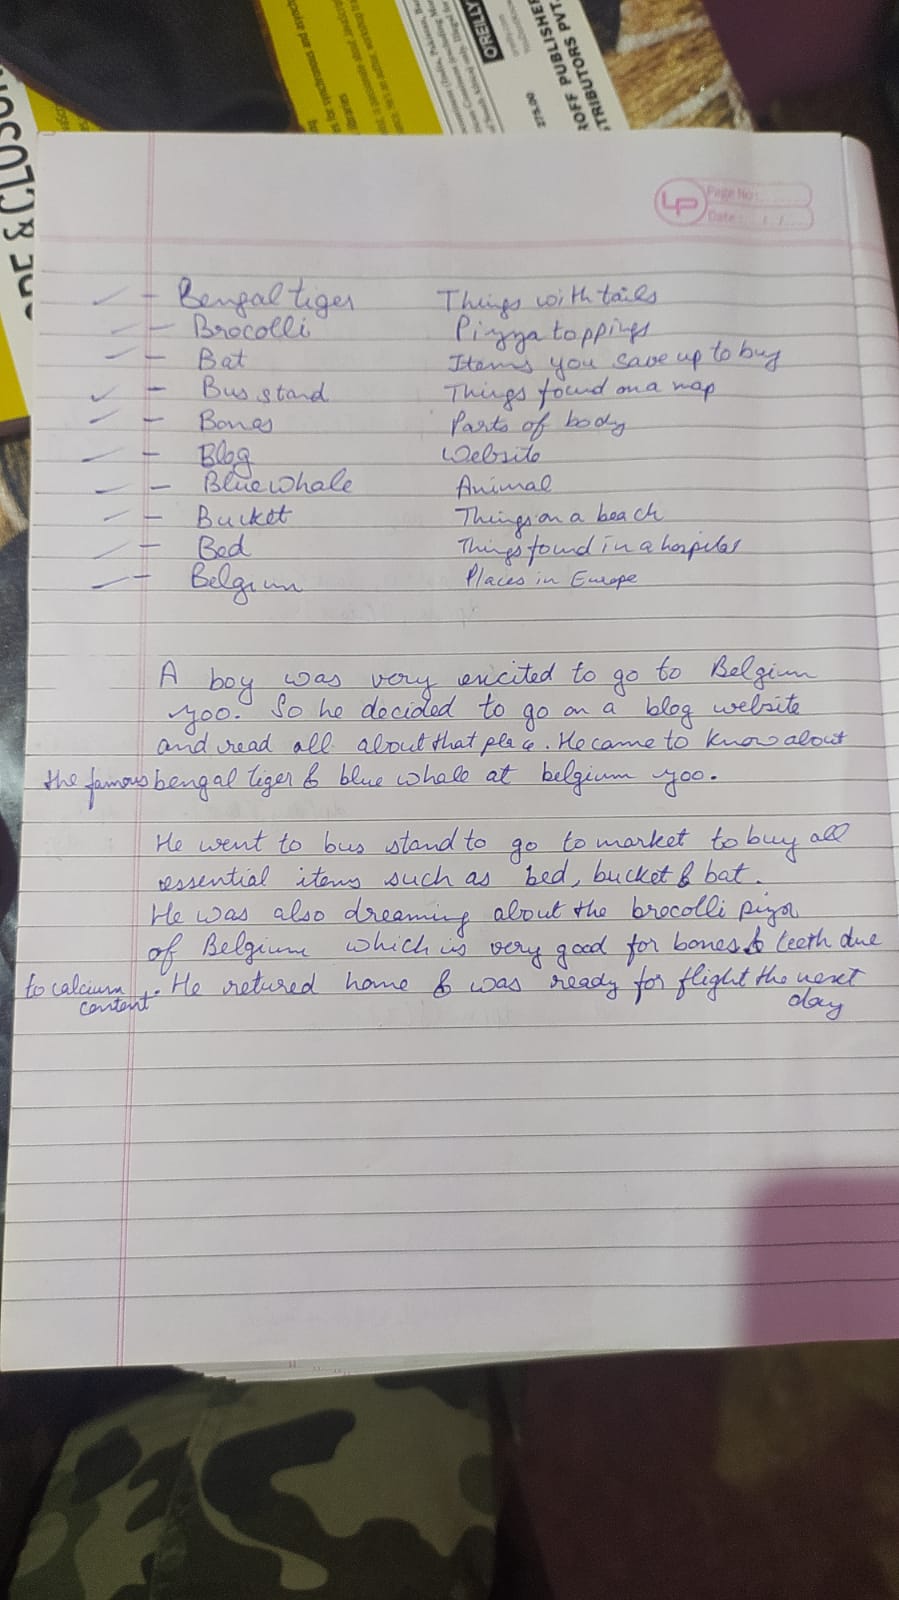 OREILLY
275.00
ROFF PUBLISHER
TRIBUTORS PVT.
& CLOSU
LP
Page No:
Date: / /
- Bengal tiger Things with tails
- Brocolli Pizza toppings
- Bat Items you save up to buy
- Bus stand Things found on a map
- Bones Parts of body
- Blog Website
- Blue whale Animal
- Bucket Things on a beach
- Bed Things found in a hospital
- Belgium Places in Europe
A boy was very excited to go to Belgium
zoo. So he decided to go on a blog website
and read all about that place. He came to know about
the famous bengal tiger & blue whale at belgium zoo.
He went to bus stand to go to market to buy all
essential items such as bed, bucket & bat.
He was also dreaming about the brocolli pizza
of Belgium which is very good for bones & teeth due
to calcium content. He retured home & was ready for flight the next
day